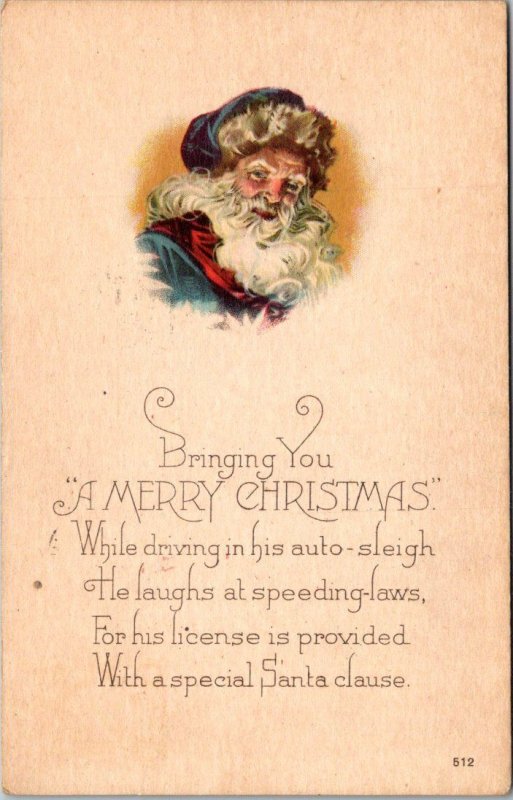 Bringing You
"A MERRY CHRISTMAS."
While driving in his auto-sleigh
He laughs at speeding-laws,
For his license is provided
With a special Santa clause.
512